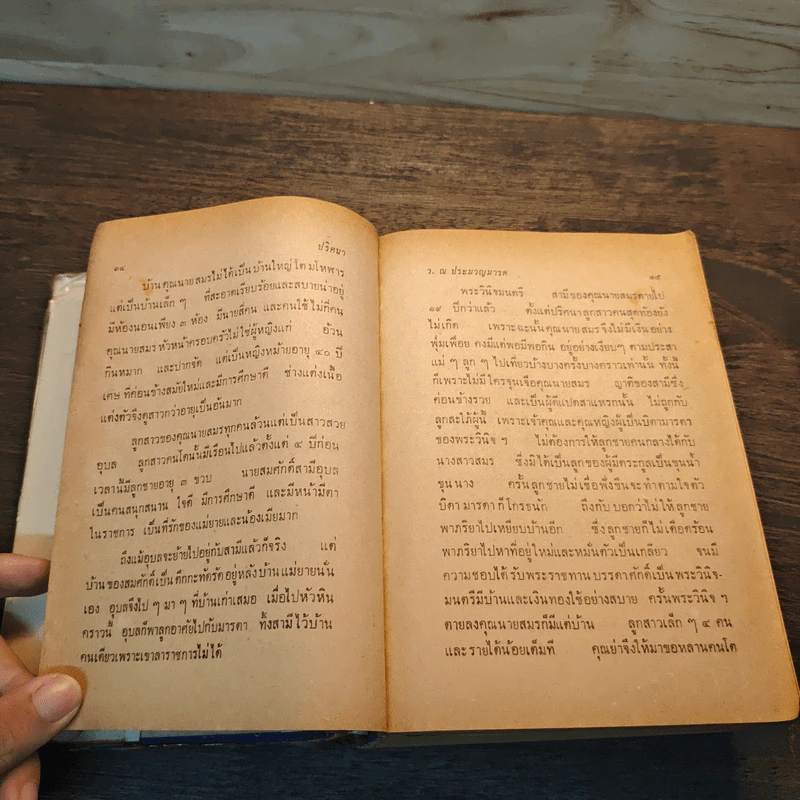 ๑๔
ปริศนา
บ้านคุณนายสมรไม่ได้เป็นบ้านใหญ่โตมโหฬาร
แต่เป็นบ้านเล็กๆ ที่สะอาดเรียบร้อยและสบายน่าอยู่
มีห้องนอนเพียง ๓ ห้อง มีนายสี่คน และคนใช้ไม่กี่คน
คุณนายสมร หัวหน้าครอบครัวไม่ใช่ผู้หญิงแก่ อ้วน
กินหมาก และปากจัด แต่เป็นหญิงหม้ายอายุ ๔๐ ปี
เศษ ที่ค่อนข้างสมัยใหม่และมีการศึกษาดี ช่างแต่งเนื้อ
แต่งตัวจึงดูสาวกว่าอายุเป็นอันมาก
ลูกสาวของคุณนายสมรทุกคนล้วนแต่เป็นสาวสวย
อุบล ลูกสาวคนโตนั้นมีเรือนไปแล้วตั้งแต่ ๔ ปีก่อน
เวลานี้มีลูกชายอายุ ๓ ขวบ นายสมศักดิ์สามีอุบล
เป็นคนสนุกสนาน ใจดี มีการศึกษาดี และมีหน้ามีตา
ในราชการ เป็นที่รักของแม่ยายและน้องเมียมาก
ถึงแม้อุบลจะย้ายไปอยู่กับสามีแล้วก็จริง แต่
บ้านของสมศักดิ์เป็นตึกกะทัดรัดอยู่หลังบ้านแม่ยายนั่น
เอง อุบลจึงไปๆ มาๆ ที่บ้านเก่าเสมอ เมื่อไปหัวหิน
คราวนี้ อุบลก็พาลูกอาศัยไปกับมารดา ทิ้งสามีไว้บ้าน
คนเดียวเพราะเขาลาราชการไม่ได้
ว. ณ ประมวญมารค
๑๕
พระวินิจมนตรี สามีของคุณนายสมรตายไป
๑๙ ปีกว่าแล้ว ตั้งแต่ปริศนาลูกสาวคนสุดท้องยัง
ไม่เกิด เพราะฉะนั้นคุณนายสมรจึงไม่มีเงินอย่าง
ฟุ่มเฟือย คงมีแต่พอมีพอกิน อยู่อย่างเงียบๆ ตามประสา
แม่ๆ ลูกๆ ไปเที่ยวบ้างบางครั้งบางคราวเท่านั้น ทั้งนี้
ก็เพราะไม่มีใครจุนเจือคุณนายสมร ญาติของสามีซึ่ง
ค่อนข้างรวย และเป็นผู้ดีแปดสาแหรกนั้น ไม่ถูกกับ
ลูกสะใภ้ผู้นี้ เพราะเจ้าคุณและคุณหญิงผู้เป็นบิดามารดา
ของพระวินิจฯ ไม่ต้องการให้ลูกชายคนกลางได้กับ
นางสาวสมร ซึ่งมิได้เป็นลูกของผู้มีตระกูลเป็นขุนน้ำ
ขุนนาง ครั้นลูกชายไม่เชื่อฟังขืนจะทำตามใจตัว
บิดามารดาก็โกรธนัก ถึงกับบอกว่าไม่ให้ลูกชาย
พาภริยาไปเหยียบบ้านอีก ซึ่งลูกชายก็ไม่เดือดร้อน
พาภริยาไปหาที่อยู่ใหม่และหมั่นตัวเป็นเกลียว จนมี
ความชอบได้รับพระราชทานบรรดาศักดิ์เป็นพระวินิจ-
มนตรีมีบ้านและเงินทองใช้อย่างสบาย ครั้นพระวินิจฯ
ตายลงคุณนายสมรก็มีแต่บ้าน ลูกสาวเล็กๆ ๔ คน
และรายได้น้อยเต็มที คุณย่าจึงให้มาขอหลานคนโต